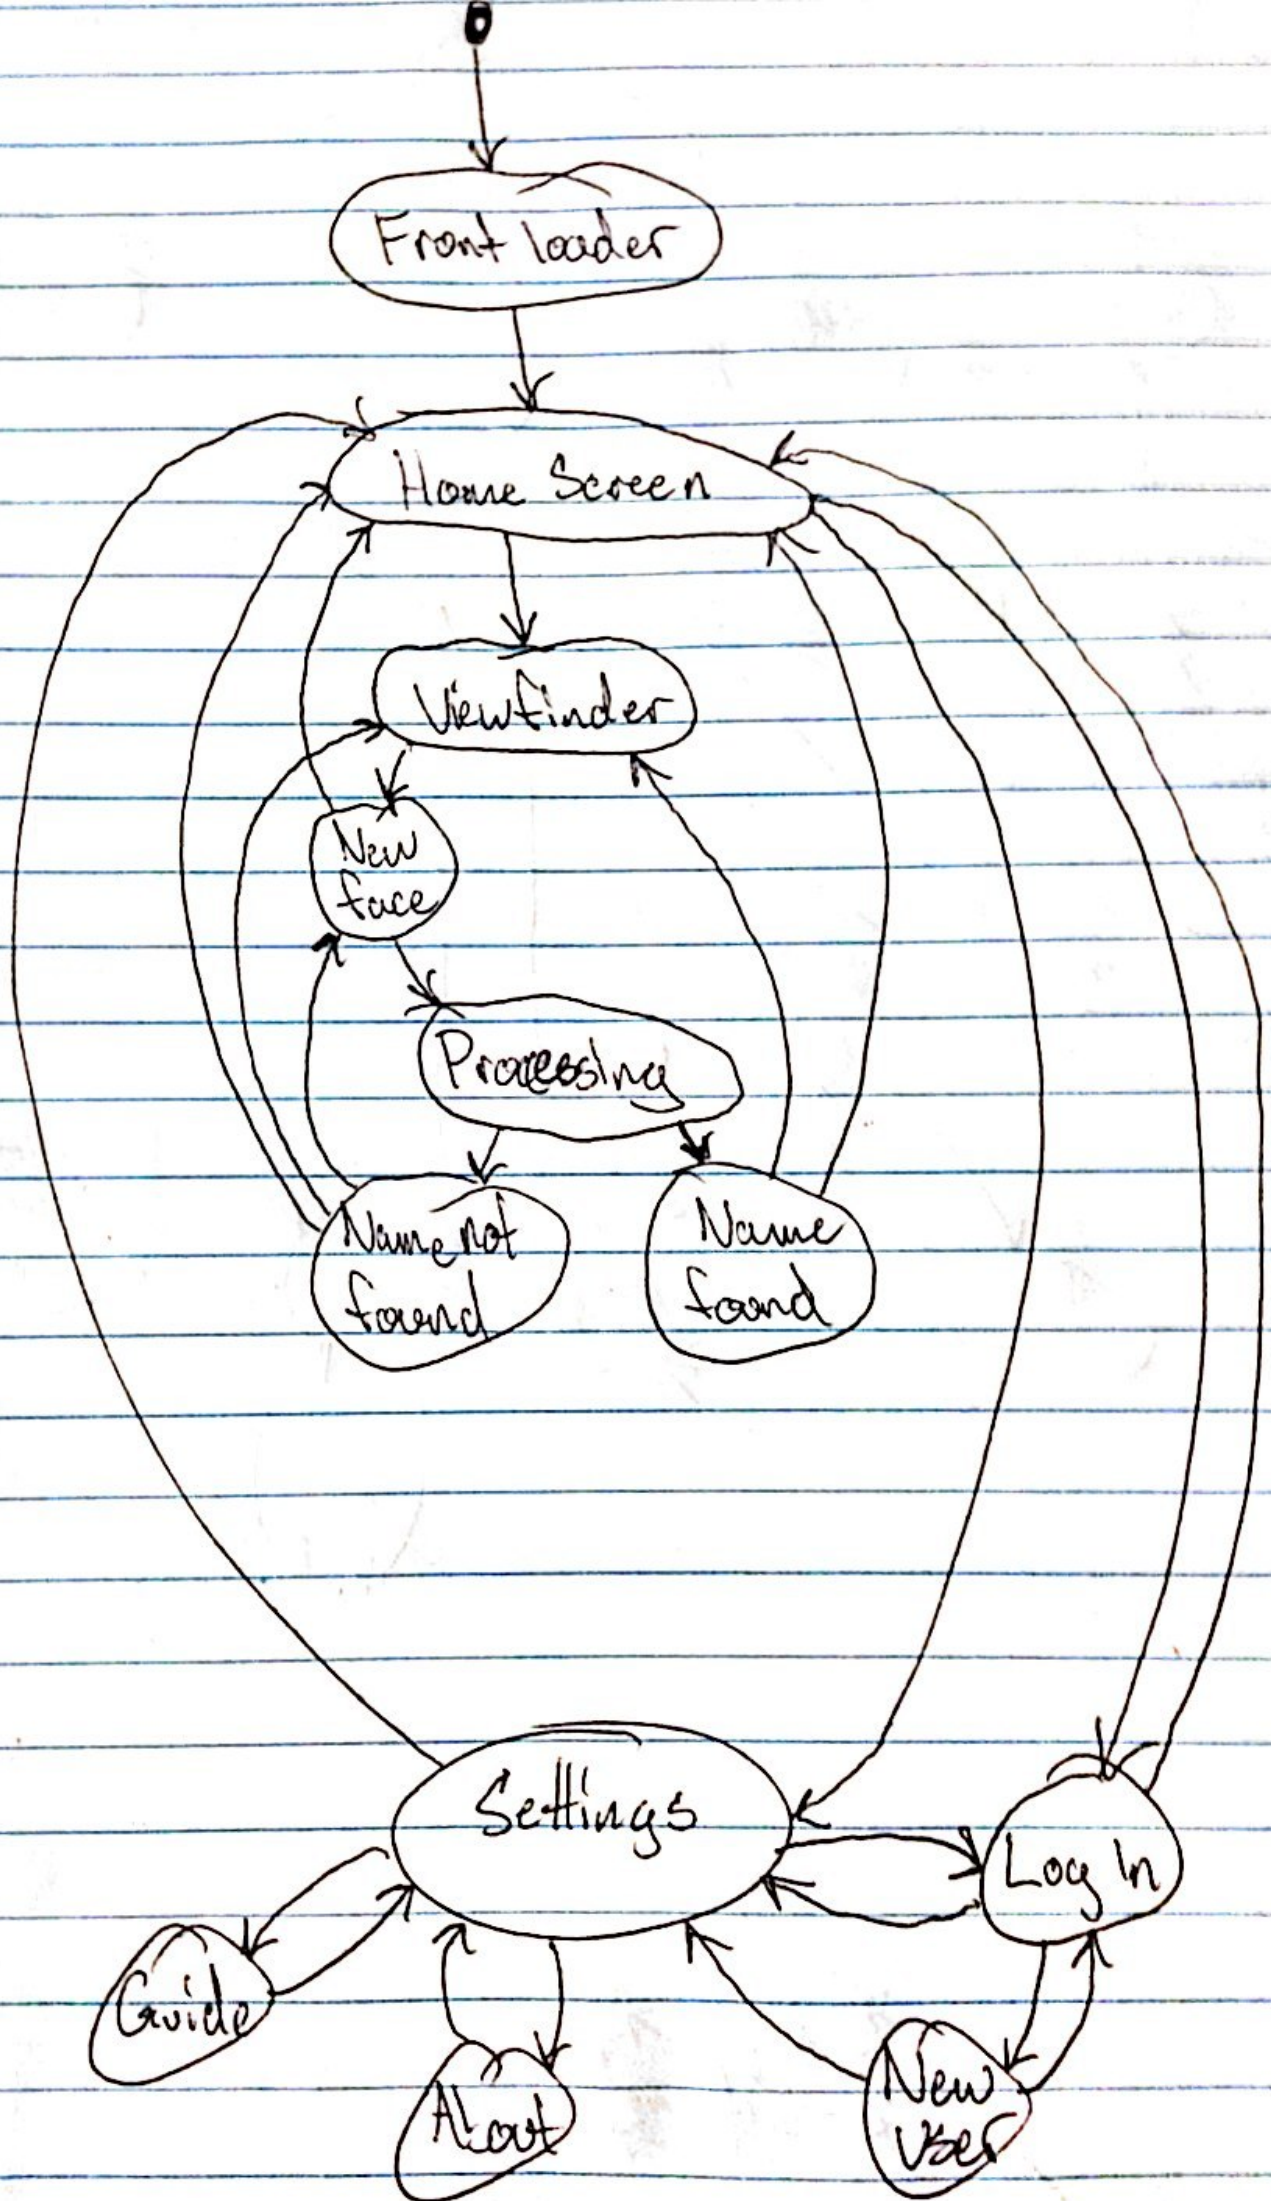 Front loader
Home Screen
Viewfinder
New
face
Processing
Name not
found
Name
found
Settings
Log In
Guide
About
New
User